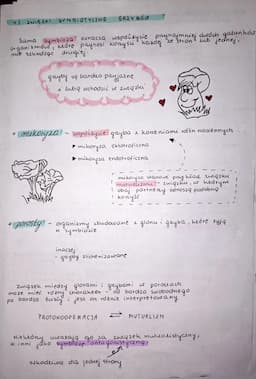 ZWIĄZKI SYMBIOTYCZNE GRZYBÓW
Sama symbioza oznacza współżycie przynajmniej dwóch gatunków
organizmów, które przynosi korzyści każdej ze stron lub jednej,
nie szkodząc drugiej.
grzyby są bardzo przyjazne
i lubią wchodzić w związki
• mikoryza - współżycie grzyba z korzeniami roślin nasiennych
▸ mikoryza ektotroficzna
▸ mikoryza endotroficzna
mikoryza stanowi przykład związku
mutualizmu - związku, w którym
obaj partnerzy odnoszą podobny
korzyść
• porosty - organizmy zbudowane z glonu i grzyba, które żyją
w symbiozie
inaczej
- grzyby zlichenizowane
Związek między glonami i grzybami w porostach
może mieć różny charakter - od bardzo swobodnego
po bardzo ścisły i jest on różnie interpretowany
PROTOKOOPERACJA ⇌ MUTUALIZM
Niektórzy uważają go za związek mutualistyczny,
a inni jako symbiozę antagonistyczną
szkodliwa dla jednej strony